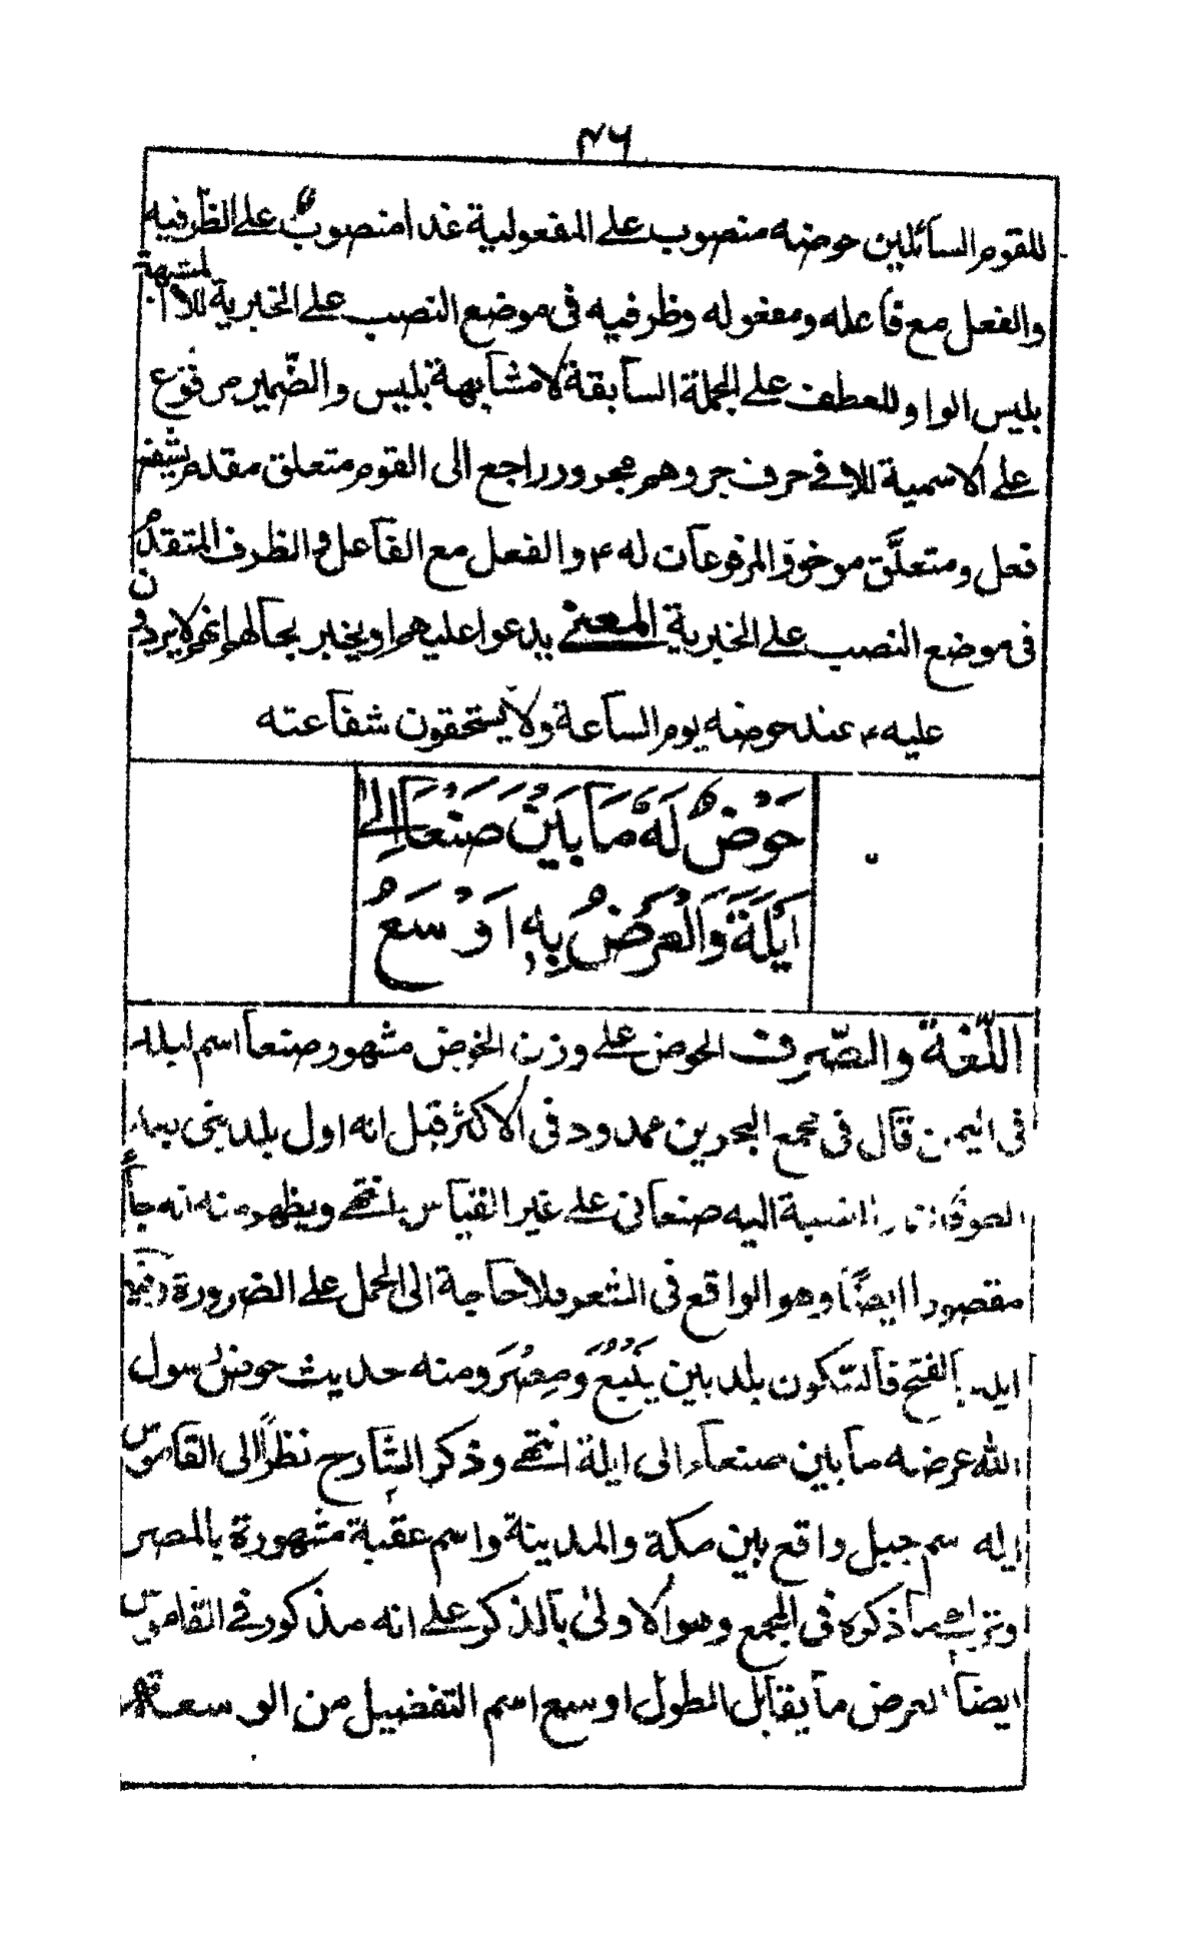 ٤٦
للقوم السائلين حوضه منصوب على المفعولية غدا منصوب على الظرفيه
والفعل مع فاعله ومفعوله وظرفيه فى موضع النصب على الخبرية للا المشبهة
بليس الواو للعطف على الجملة السابقة لا مشابهة بليس والضمير مرفوع
على الاسمية للا فى حرف جر وهم مجرور راجع الى القوم متعلق مقدم يشفع
فعل ومتعلق موخوذ المرفوعات له ۴ والفعل مع الفاعل والظرف المتقدم
فى موضع النصب على الخبرية المعنى يدعوا عليهم او يخبر بحالهم انهم لا يردون
عليه ۴ عند حوضه يوم الساعة ولا يستحقون شفاعته
حَوْضٌ لَهُ مَا بَيْنَ صَنْعَا اِلىٰ
اَيْلَةَ وَالْعَرْضُ بِهٖ اَوْسَعُ
اللّغة والصّرف الحوض على وزن الخوض مشهور صنعا اسم لبلد
فى اليمن قال فى مجمع البحرين ممدود فى الاكثر قيل انه اول بلد بنى بعد
النسبة اليه صنعانى على غير القياس انتهى ويظهر منه انه جاء
مقصورا ايضًا وهو الواقع فى الشعر فلا حاجة الى الحمل على الضرورة وفيه
ايلة بالفتح فالسّكون بلد بين يَنْبُعَ وَمِصْرَ ومنه حديث حوض رسول
الله عرضه ما بين صنعاء الى ايلة انتهى وذكر الشارح نظراً الى القاموس
ايله اسم جبل واقع بين مكة والمدينة واسم عقبة مشهورة بالمصر
ما ذكره فى المجمع وهو الاولى بالذكر على انه مذكور فى القاموس
ايضا العرض ما يقابل الطول اوسع اسم التفضيل من الوسعة